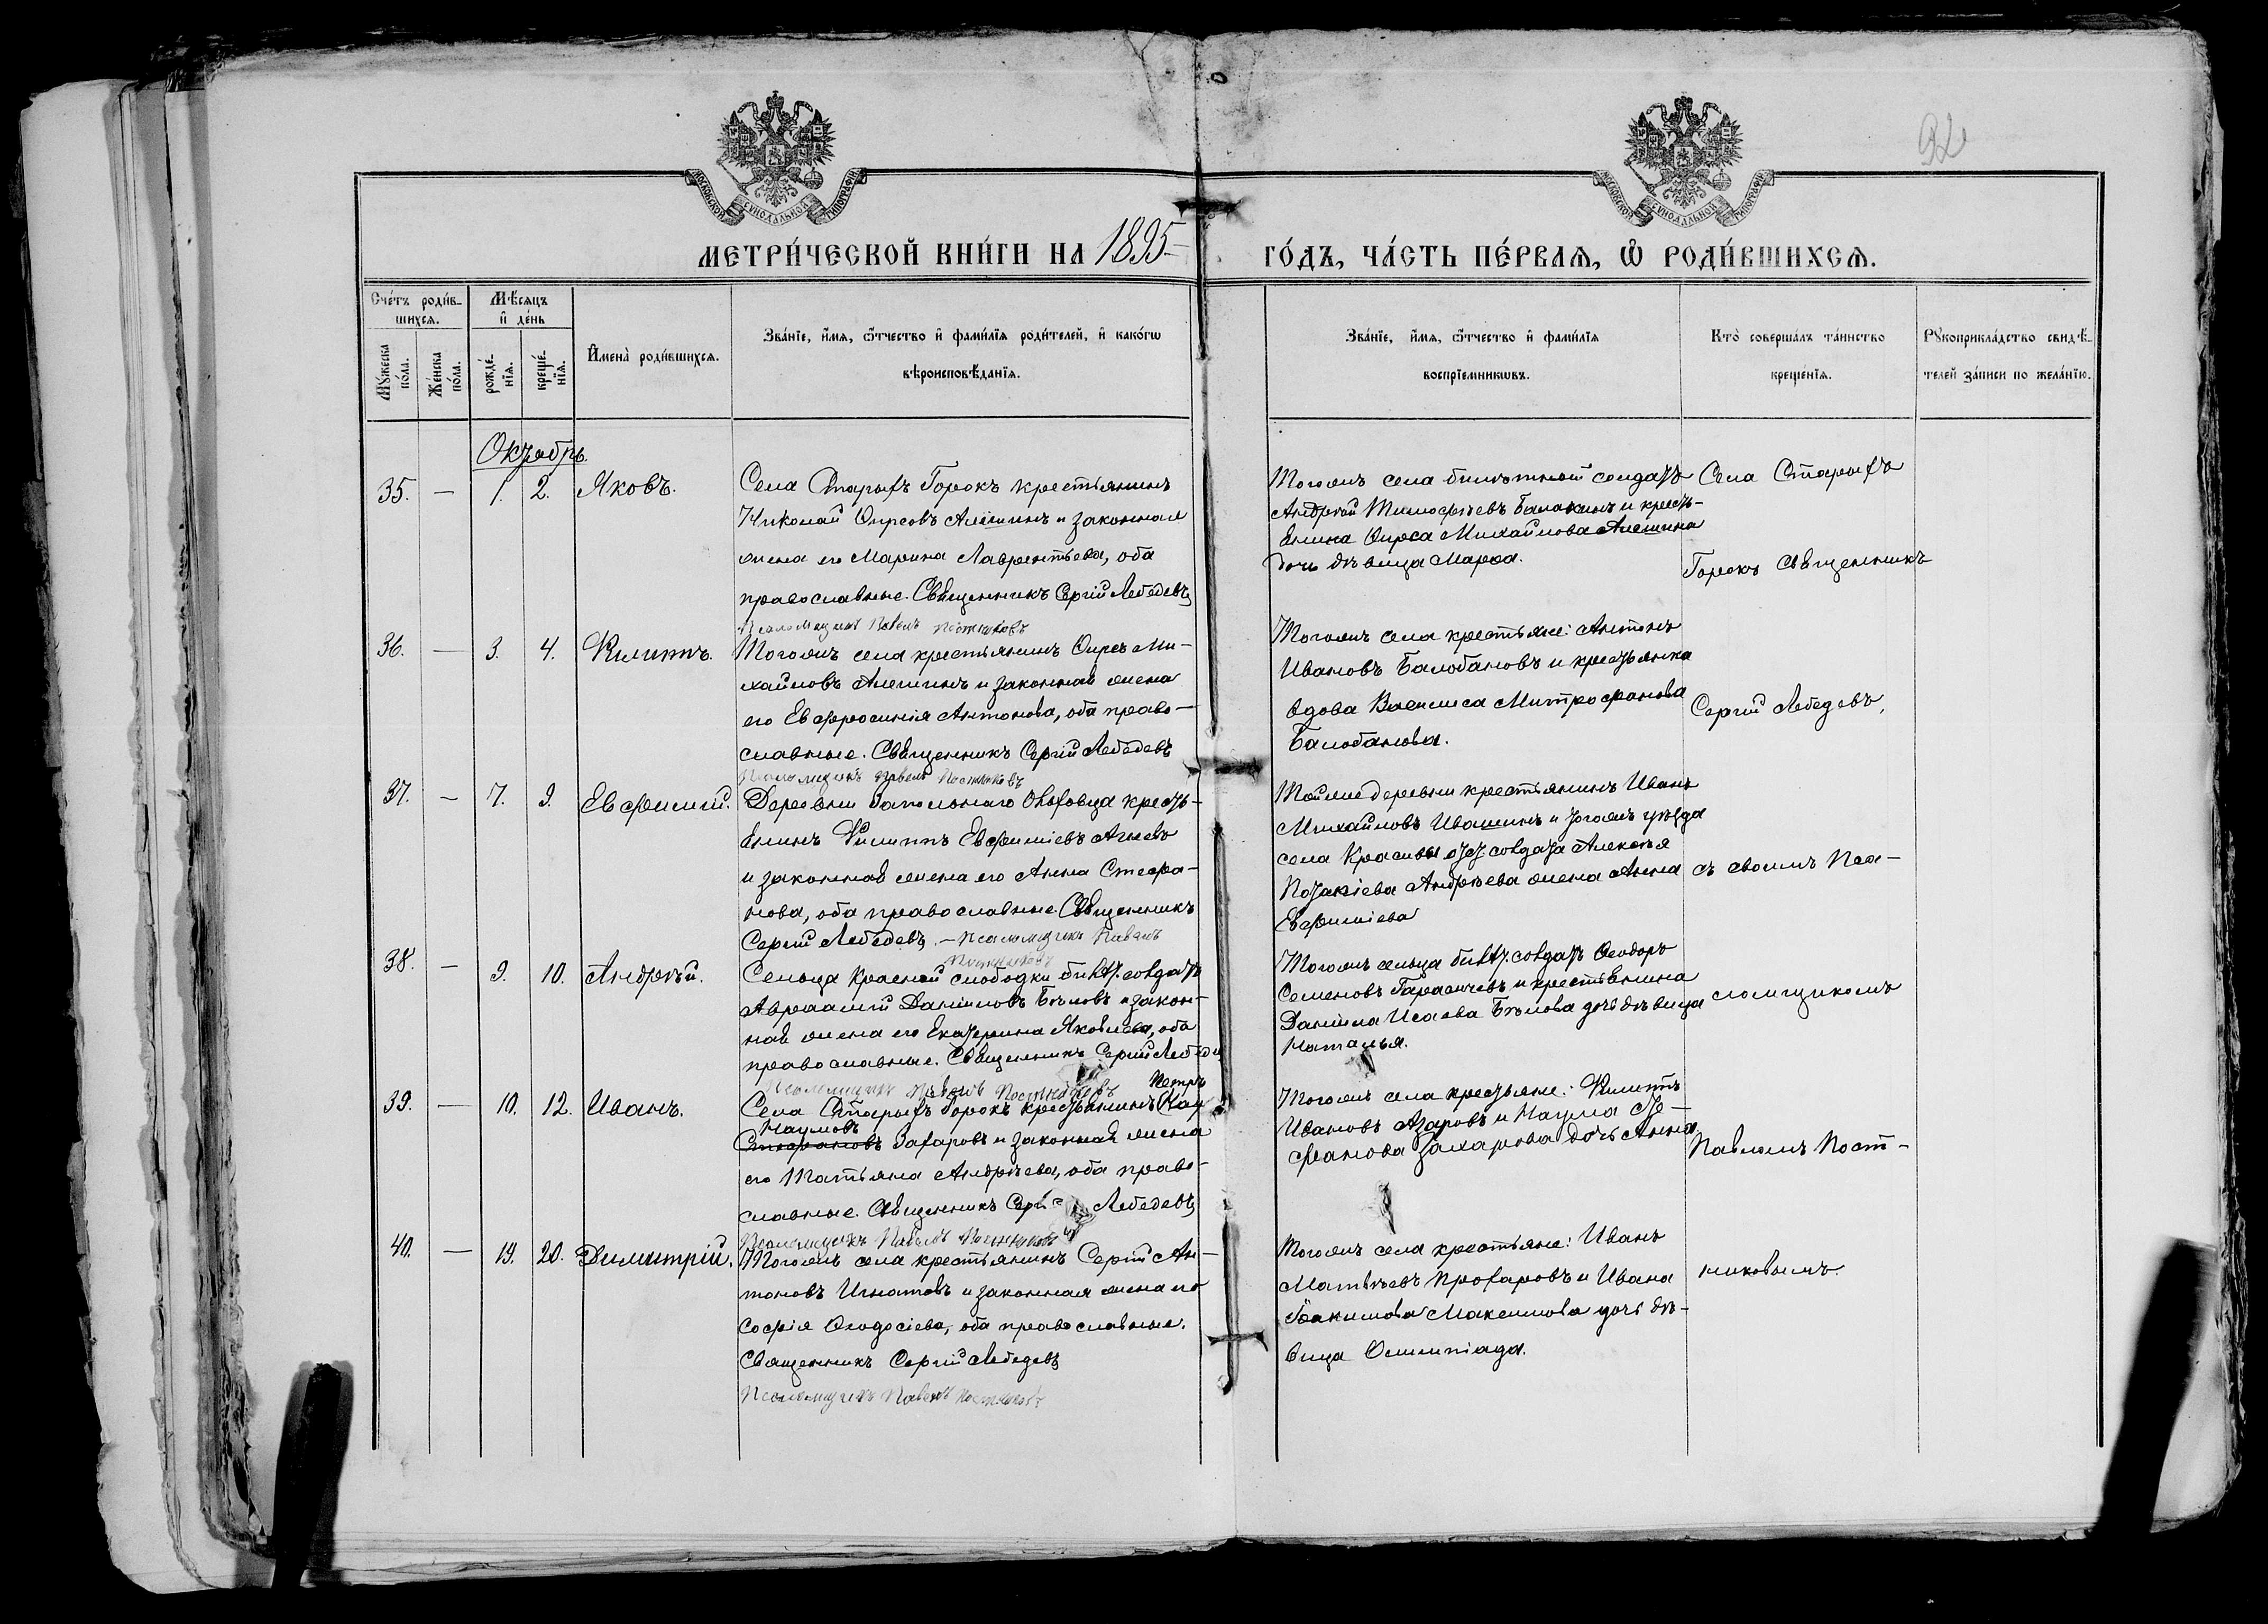 92
МОСКОВСКОЙ СУНОДАЛЬНОЙ ТИПОГРАФІИ
МОСКОВСКОЙ СУНОДАЛЬНОЙ ТИПОГРАФІИ
МЕТРИ́ЧЕСКОЙ КНИ́ГИ НА 1895
ГО́ДЪ, ЧА́СТЬ ПЕ́РВАѦ, Ѡ РОДИ́ВШИХСѦ.
Сче́тъ роди́в-
шихсѧ.
Мꙋ́жеска по́ла.
Же́нска по́ла.
Мѣ́сѧцъ
и҆ де́нь
рожде́-
нїѧ.
креще́-
нїѧ.
И҆мена̀ роди́вшихсѧ.
Зва́нїе, и҆́мѧ, ѻ҆́тчество и҆ фами́лїѧ роди́телей, и҆ како́гѡ
вѣроисповѣ́данїѧ.
Зва́нїе, и҆́мѧ, ѻ҆́тчество и҆ фами́лїѧ
воспрїе́мникѡвъ.
Кто̀ соверша́лъ та́инство
креще́нїѧ.
Рꙋкоприкла́дство свидѣ́-
телей за́писи по жела́нїю.
Октябрь.
35. — 1. 2. Яковъ.
Села Старыхъ Горокъ крестьянинъ
Николай Ѳирсовъ Алешинъ и законная
жена его Марина Лаврентьева, оба
православные. Священникъ Сергій Лебедевъ
Псаломщикъ Павелъ Постниковъ
Тогожъ села билетный солдатъ
Андрей Тимофѣевъ Балакинъ и кресть-
янина Ѳирса Михайлова Алешина
дочь дѣвица Марѳа.
Села Старыхъ
Горокъ Священникъ
36. — 3. 4. Филиппъ.
Тогожъ села крестьянинъ Ѳирсъ Ми-
хайловъ Алешинъ и законная жена
его Евфросинія Антонова, оба право-
славные. Священникъ Сергій Лебедевъ
Псаломщикъ Павелъ Постниковъ
Тогожъ села крестьяне: Антонъ
Ивановъ Балобановъ и крестьянка
вдова Василиса Митрофанова
Балобанова.
Сергій Лебедевъ,
37. — 7. 9. Евфимій.
Деревни крестья-
янинъ Филиппъ Евфиміевъ Агѣевъ
и законная жена его Анна Стефа-
нова, оба православные. Священникъ
Сергій Лебедевъ. — Псаломщикъ Павелъ
Постниковъ
Тойже деревни крестьянинъ Иванъ
Михайловъ Ивашинъ и тогожъ уѣзда
села Красивы отст. солдата Алексѣя
Андреева жена Анна
Евфиміева
съ своимъ Пса-
38. — 9. 10. Андрей.
Сельца Красной слободки билет. солдатъ
Авраамій Даниловъ Бѣловъ и закон-
ная жена его Екатерина Яковлева, оба
православные. Священникъ Сергій Лебедевъ
Псаломщикъ Павелъ Постниковъ
Тогожъ сельца билет. солдатъ Ѳеодоръ
Семеновъ и крестьянина
Данiила Исаева Бѣлова дочь дѣвица
Наталья.
ломщикомъ
39. — 10. 12. Иванъ.
Петръ
Села Старыхъ Горокъ крестьянинъ
Наумовъ
Стефановъ Захаровъ и законная жена
его Татьяна Андреева, оба право-
славные. Священникъ Сергій Лебедевъ
Псаломщикъ Павелъ Постниковъ
Тогожъ села крестьяне: Филиппъ
Ивановъ Азаровъ и Наума Сте-
фанова Захарова дочь Анна.
Павломъ Пост-
40. — 19. 20. Димитрій.
Тогожъ села крестьянинъ Сергій Ан-
тоновъ Игнатовъ и законная жена его
Софія Ѳеодосіева, оба православные.
Священникъ Сергій Лебедевъ
Псаломщикъ Павелъ Постниковъ
Тогожъ села крестьяне: Иванъ
Матвѣевъ Прохаровъ и Ивана
Іоакимова Максимова дочь дѣ-
вица Олимпіада.
никовымъ.